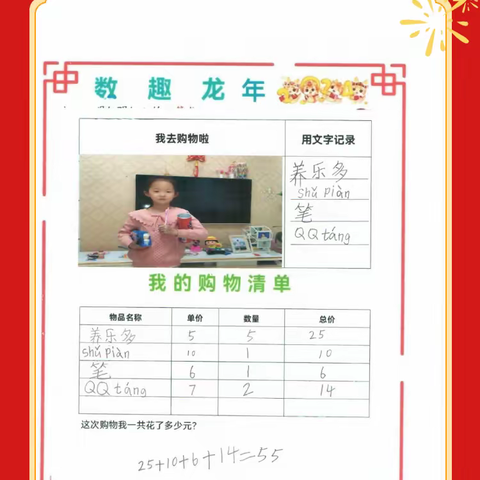 数趣龙年
我去购物啦 用文字记录
养乐多
shǔ piàn
笔
QQ táng
我的购物清单
物品名称 单价 数量 总价
养乐多 5 5 25
shǔ piàn 10 1 10
笔 6 1 6
QQ táng 7 2 14
这次购物我一共花了多少元?
25+10+6+14=55